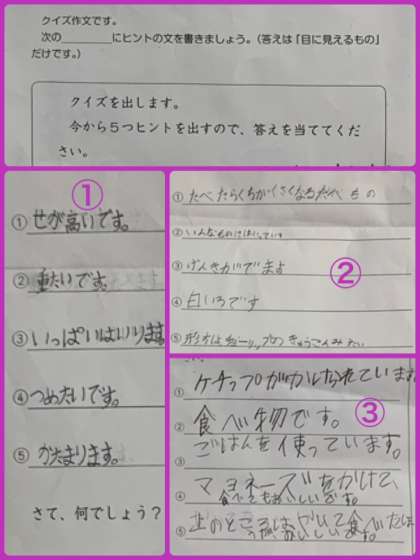 クイズ作文です。
次の______にヒントの文を書きましょう。(答えは「目に見えるもの」
だけです。)
クイズを出します。
今から5つヒントを出すので、答えを当ててくだ
さい。
①
① せが高いです。
② 重たいです。
③ いっぱいはいります
④ つめたいです。
⑤ かたまります。
さて、何でしょう?
②
① たべたらくちがくさくなるたべもの
② いろんなものにはいっています
③ げんきがでます
④ 白いろです
⑤ 形はチューリップのきゅうこんみたい
③
① ケチャップがかけられています
② 食べ物です。
③ ごはんを使っています。
④ マヨネーズをかけて
食べてもおいしいです。
⑤ 上のところ